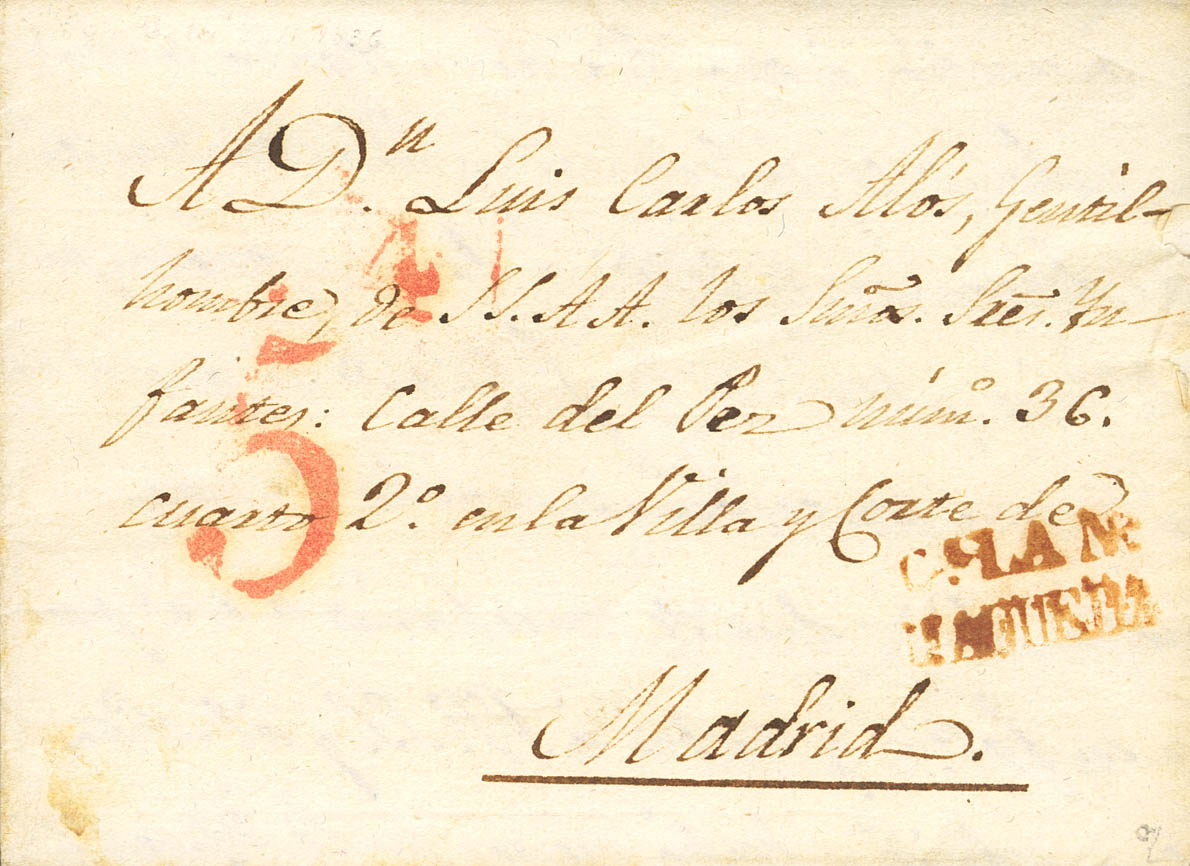 A D.n Luis Carlos Alós, Gentil-
hombre, de SS. AA. los Smos. Sres. Yn
fantes: Calle del Pez núm.o 36.
cuarto 2.o en la Villa y Corte de
Madrid.
5
4
MAQUEDA